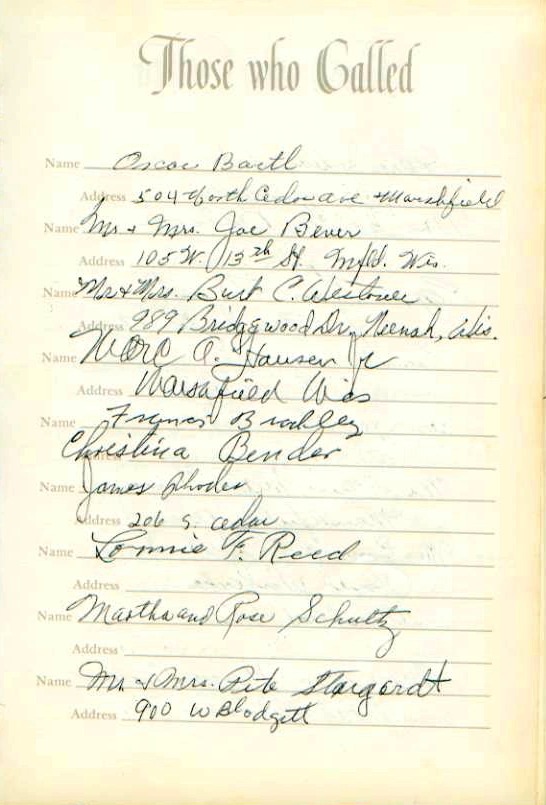 Those who Called
Name Oscar Bartl
Address 504 North Cedar ave Marshfield
Name Mr + Mrs. Joe Bever
Address 105 W. 13th St. Mfld. Wis.
Name Mr & Mrs. Burt C. Westover
Address 989 Bridgewood Dr, Neenah, Wis.
Name Marc A. Hansen Jr
Address Marshfield Wis
Name Frances Brackley
Christina Bender
Name James Rhodes
Address 206 S. cedar
Name Lonnie F. Reed
Address
Name Martha and Rose Schultz
Address
Name Mr & Mrs. Pete Stargardt
Address 900 W Blodgett